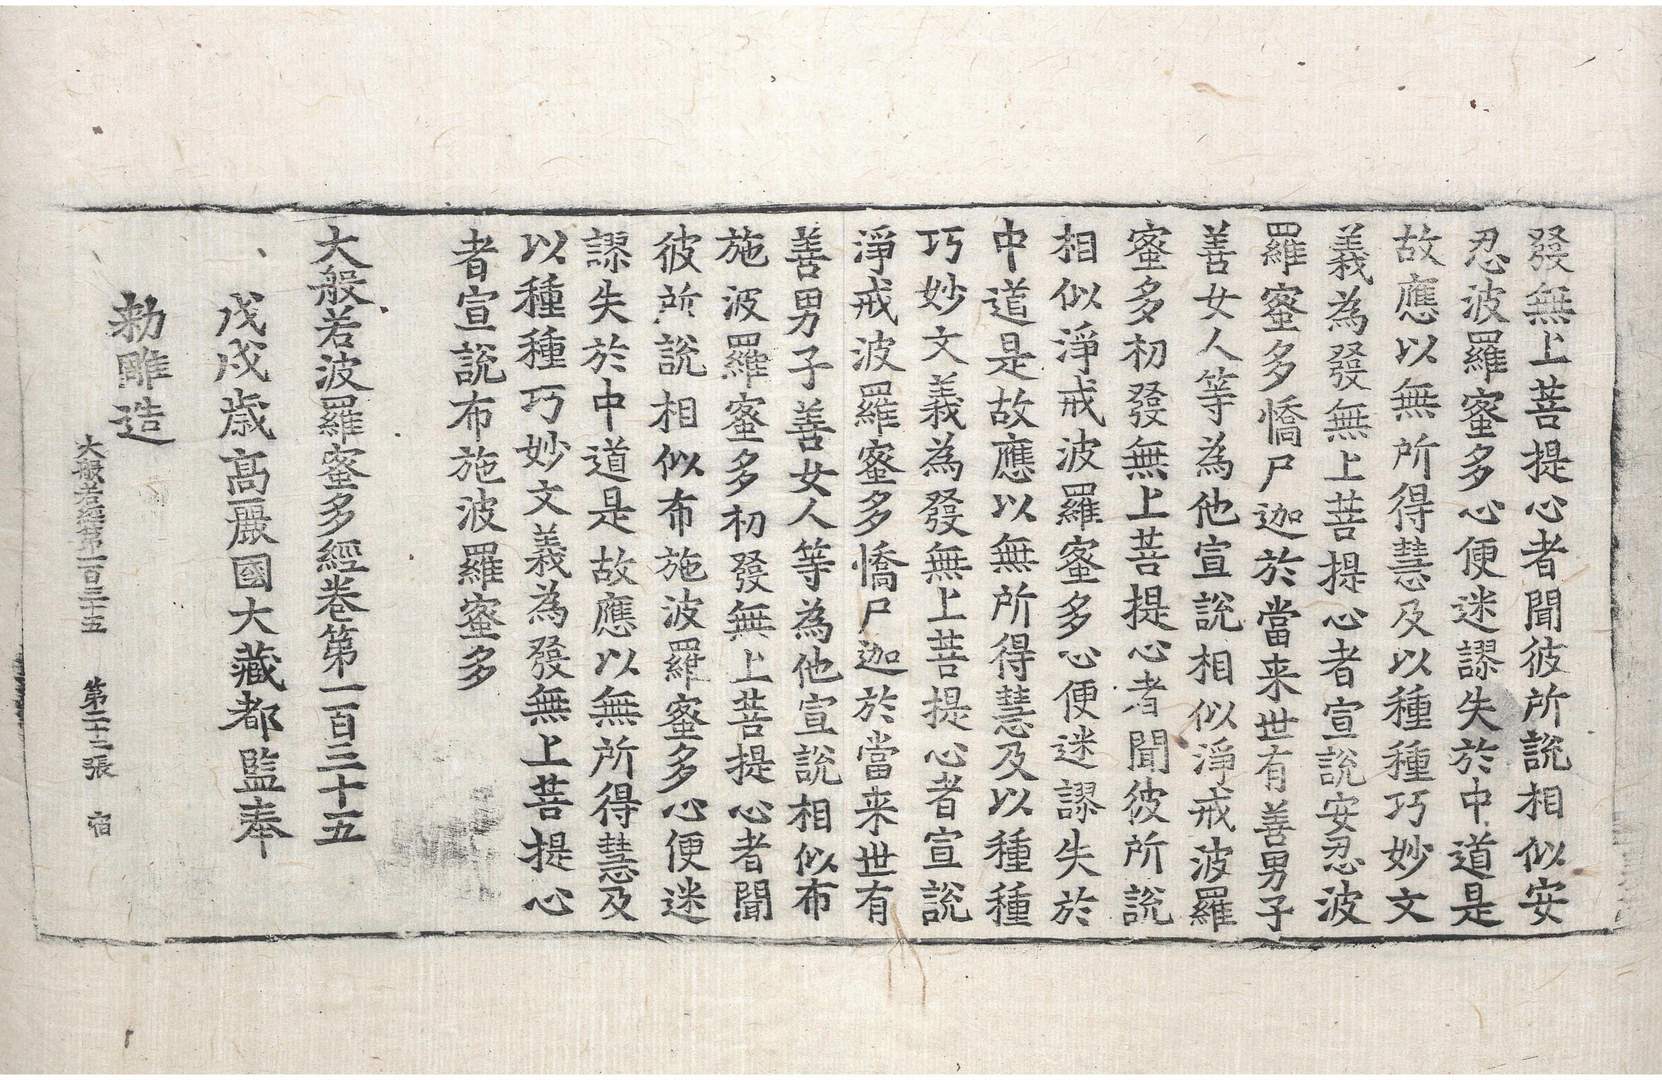 發無上菩提心者聞彼所說相似安
忍波羅蜜多心便迷謬失於中道是
故應以無所得慧及以種種巧妙文
義為發無上菩提心者宣說安忍波
羅蜜多憍尸迦於當来世有善男子
善女人等為他宣說相似淨戒波羅
蜜多初發無上菩提心者聞彼所說
相似淨戒波羅蜜多心便迷謬失於
中道是故應以無所得慧及以種種
巧妙文義為發無上菩提心者宣說
淨戒波羅蜜多憍尸迦於當来世有
善男子善女人等為他宣說相似布
施波羅蜜多初發無上菩提心者聞
彼所說相似布施波羅蜜多心便迷
謬失於中道是故應以無所得慧及
以種種巧妙文義為發無上菩提心
者宣說布施波羅蜜多
大般若波羅蜜多經卷第一百三十五
戊戌歲高麗國大藏都監奉
勅雕造
大般若經第一百三十五 第二十二張 宿